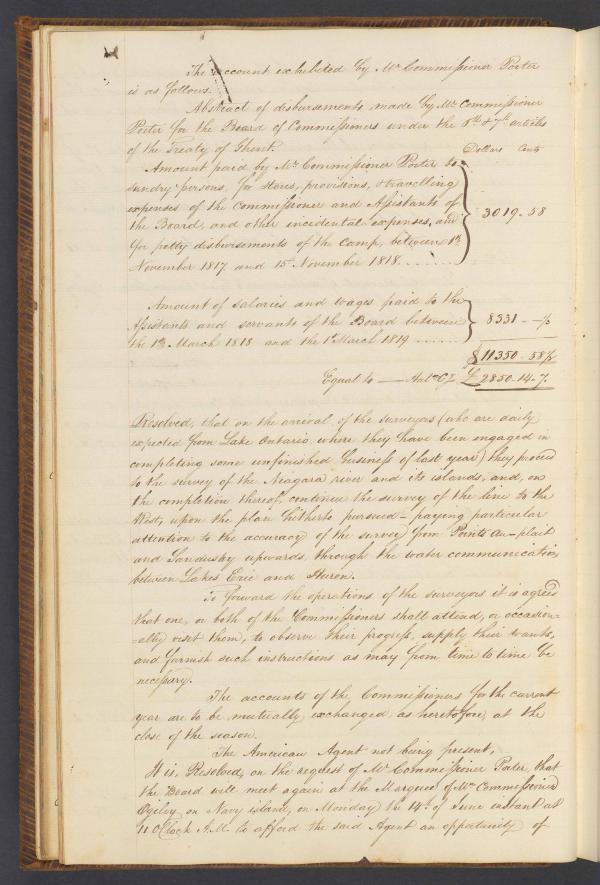 The account exhibited by Mr Commissioner Porter
is as follows.
Abstract of disbursements made by Mr Commissioner
Porter for the Board of Commissioners under the 6th & 7th articles
of the Treaty of Ghent.
Dollars Cents
Amount paid by Mr Commissioner Porter to
sundry persons, for stores, provisions, & travelling
expenses of the Commissioner and Assistants of
the Board, and other incidental expenses, and
for petty disbursements of the Camp, between 1st
November 1817 and 15th November 1818.......
3019.58
Amount of salaries and wages paid to the
Assistants and servants of the Board between
the 1st March 1818 and the 1st March 1819 ......
8331.—
$11350.58
Equal to — £2850.14.7.
Resolved, that on the arrival of the surveyors (who are daily
expected from Lake Ontario where they have been engaged in
completing some unfinished business of last year) they proceed
to the survey of the Niagara river and its islands, and, on
the completion thereof, continue the survey of the line to the
West, upon the plan hitherto pursued – paying particular
attention to the accuracy of the survey from Point Au-plait
and Sandusky upwards, through the water communication
between Lakes Erie and Huron.
To forward the operations of the surveyors it is agreed
that one, or both of the Commissioners shall attend, or occasion=
=ally visit them, to observe their progress, supply their wants,
and furnish such instructions as may from time to time be
necessary.
The accounts of the Commissioners for the current
year are to be mutually exchanged, as heretofore, at the
close of the season.
The American Agent not being present,
It is, Resolved, on the request of Mr Commissioner Porter, that
the Board will meet again at the Marquee of Mr Commissioner
Ogilvy on Navy island, on Monday the 14th of June instant at
11 O'Clock A.M. to afford the said Agent an opportunity of